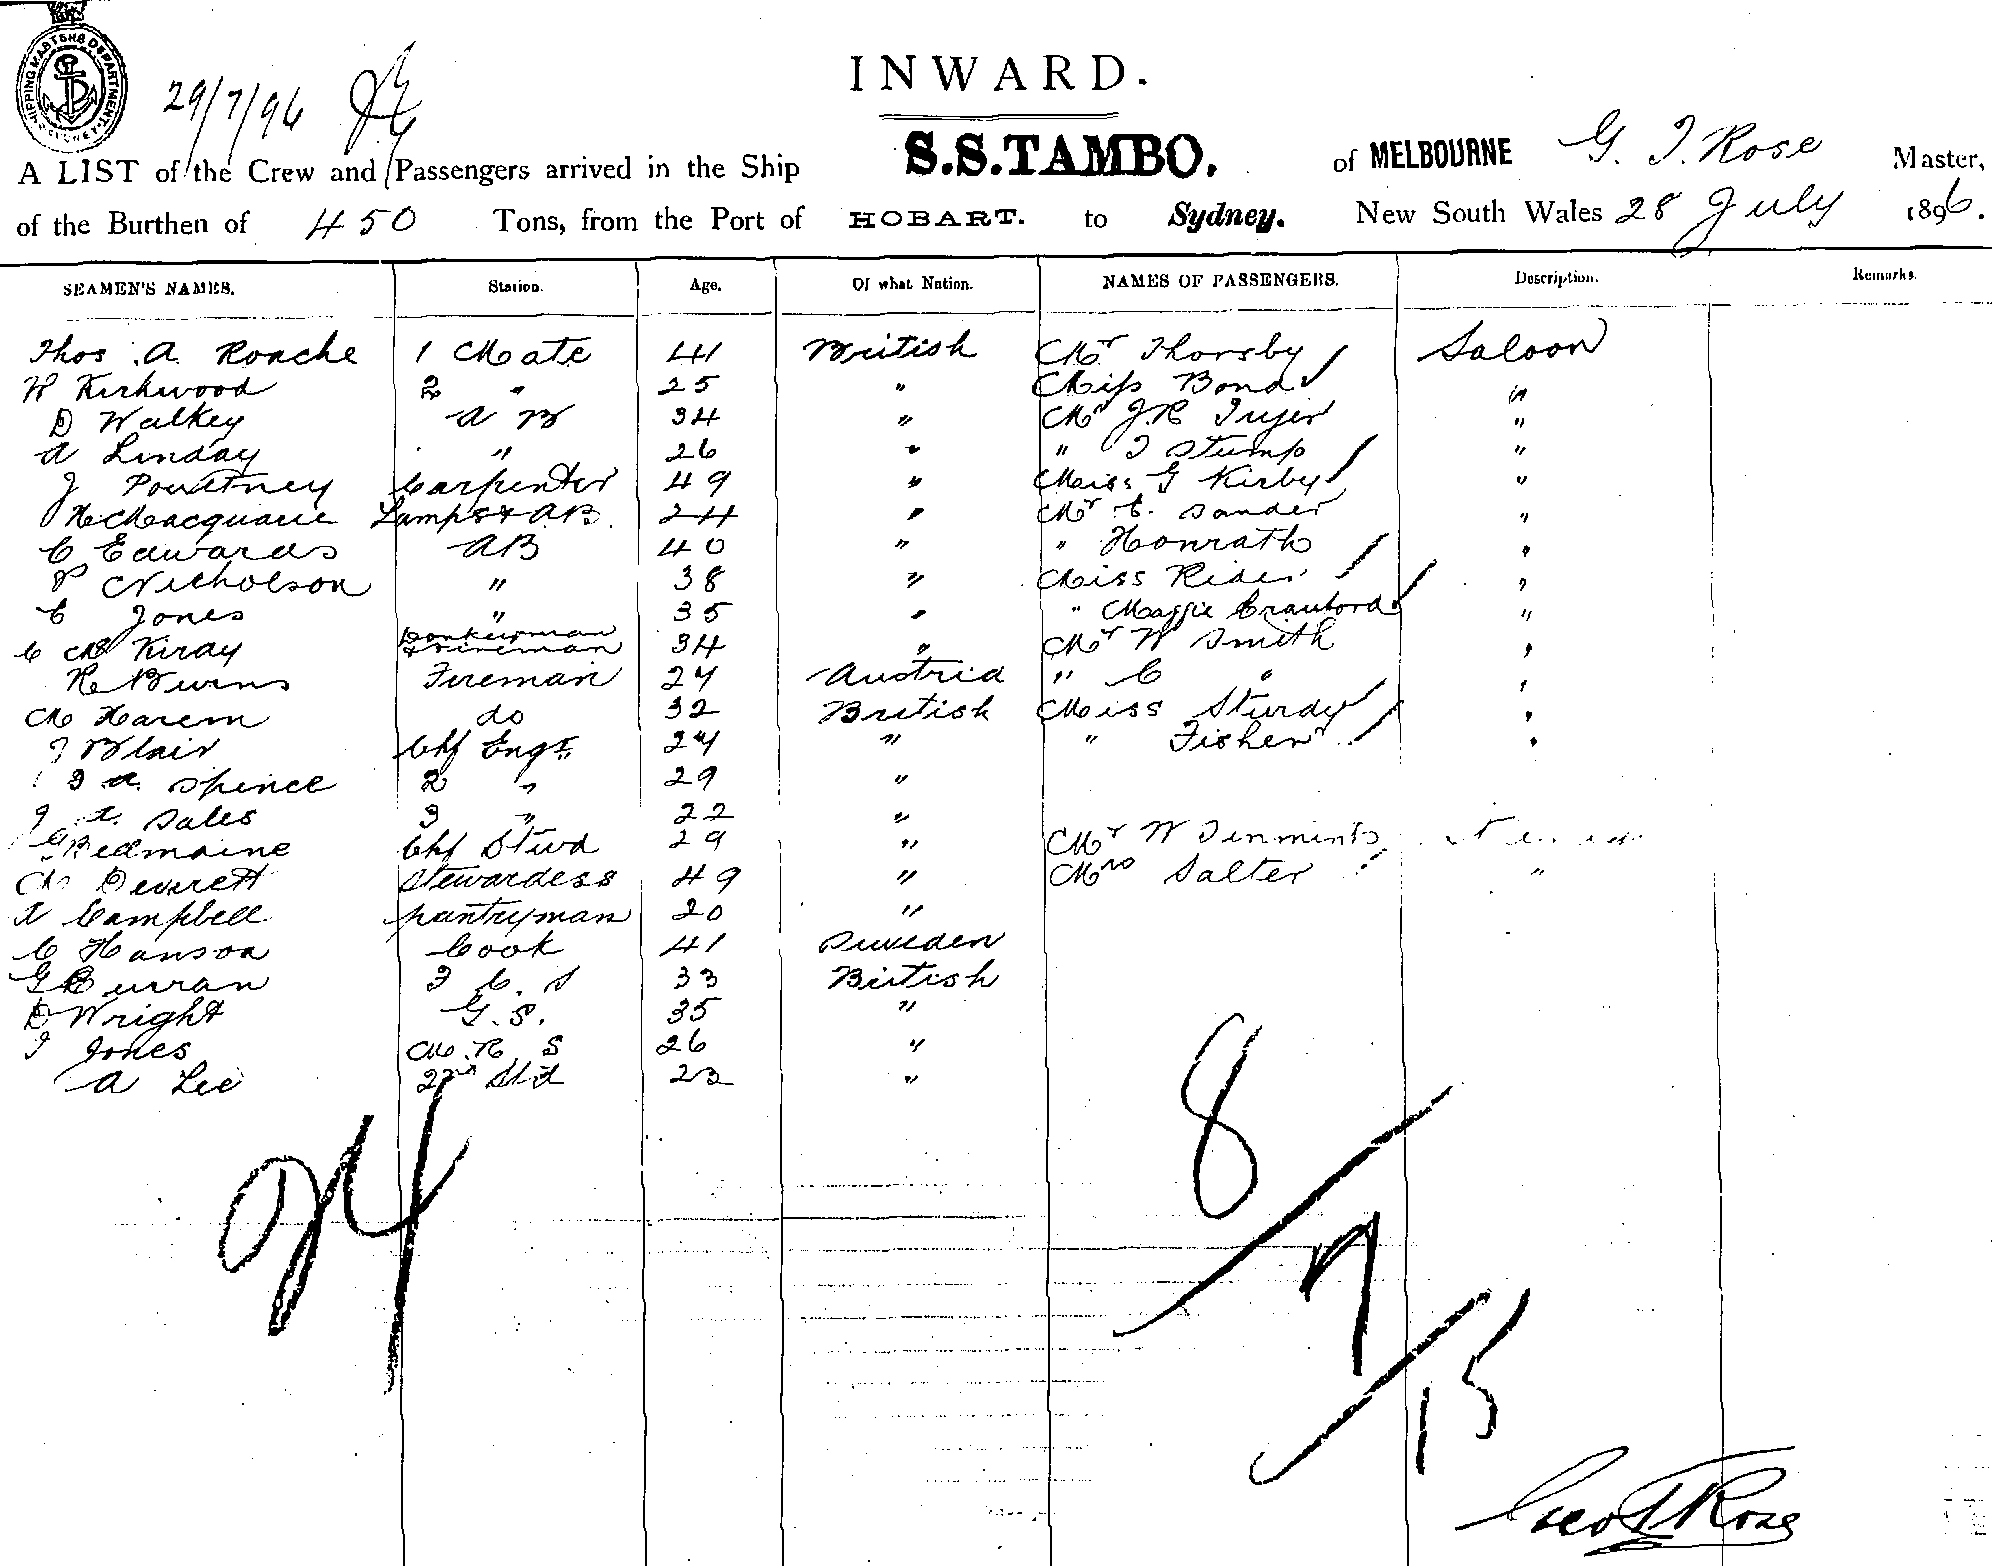 SHIPPING MASTERS DEPARTMENT SYDNEY
29/7/96
INWARD.
A LIST of the Crew and Passengers arrived in the Ship S.S. TAMBO. of MELBOURNE G. T. Rose Master,
of the Burthen of 450 Tons, from the Port of HOBART. to Sydney. New South Wales 28 July 1896.
SEAMEN'S NAMES. Station. Age. Of what Nation. NAMES OF PASSENGERS. Description. Remarks.
Thos. A. Roache 1 Mate 41 British Mr Thorsby Saloon
Kirkwood 2 " 25 " Miss Bond "
D Walkey A B 34 " Mr J.R Tryer "
A Linday " 26 " " T Stump "
J Poultney Carpenter 49 " Miss G Kirby "
H McMacquarie Lamps & AB. 24 " Mr C. Sander "
C Edwards AB 40 " " Honrath "
P Nicholson " 38 " Miss Rider "
C Jones " 35 " " Maggie Crawford "
C McKiray Donkeyman & Fireman 34 " Mr W Smith "
H Burns Fireman 24 Austria " C " "
M Harem do 32 British Miss Sturdy "
J Blair Chf Engr. 24 " " Fisher "
J A. Spence 2 " 29 "
J A. Sales 3 " 22 "
G Redmaine Chf Stwd 29 " Mr W Timmints
M Deverett Stewardess 49 " Mrs Salter "
A Campbell pantryman 20 "
C Hanson Cook 41 Sweden
G Curran 3 C. S 33 British
D Wright G. S. 35 "
J Jones M. R. S 26 "
A Lee 2nd Std 23 "
24
8
7
15
Geo T Rose